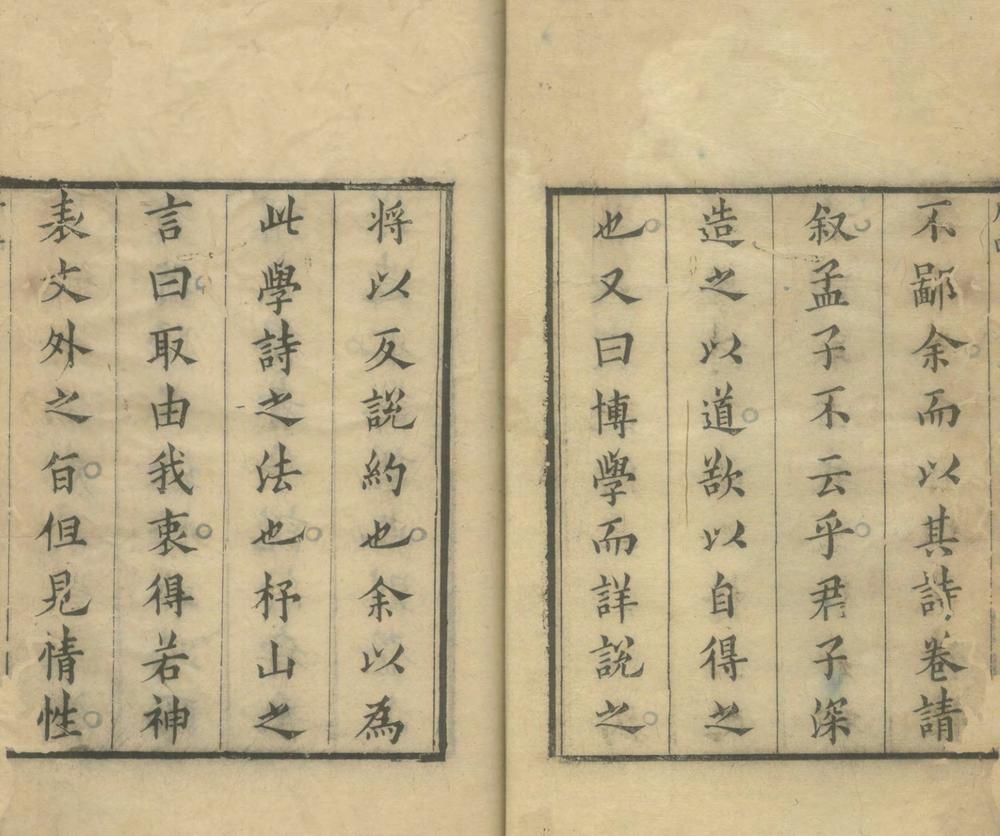 不鄙余而以其詩卷請
叙孟子不云乎君子深
造之以道欲以自得之
也又曰博學而詳說之
将以反說約也余以為
此學詩之法也杼山之
言曰取由我衷得若神
表文外之㫖但見情性